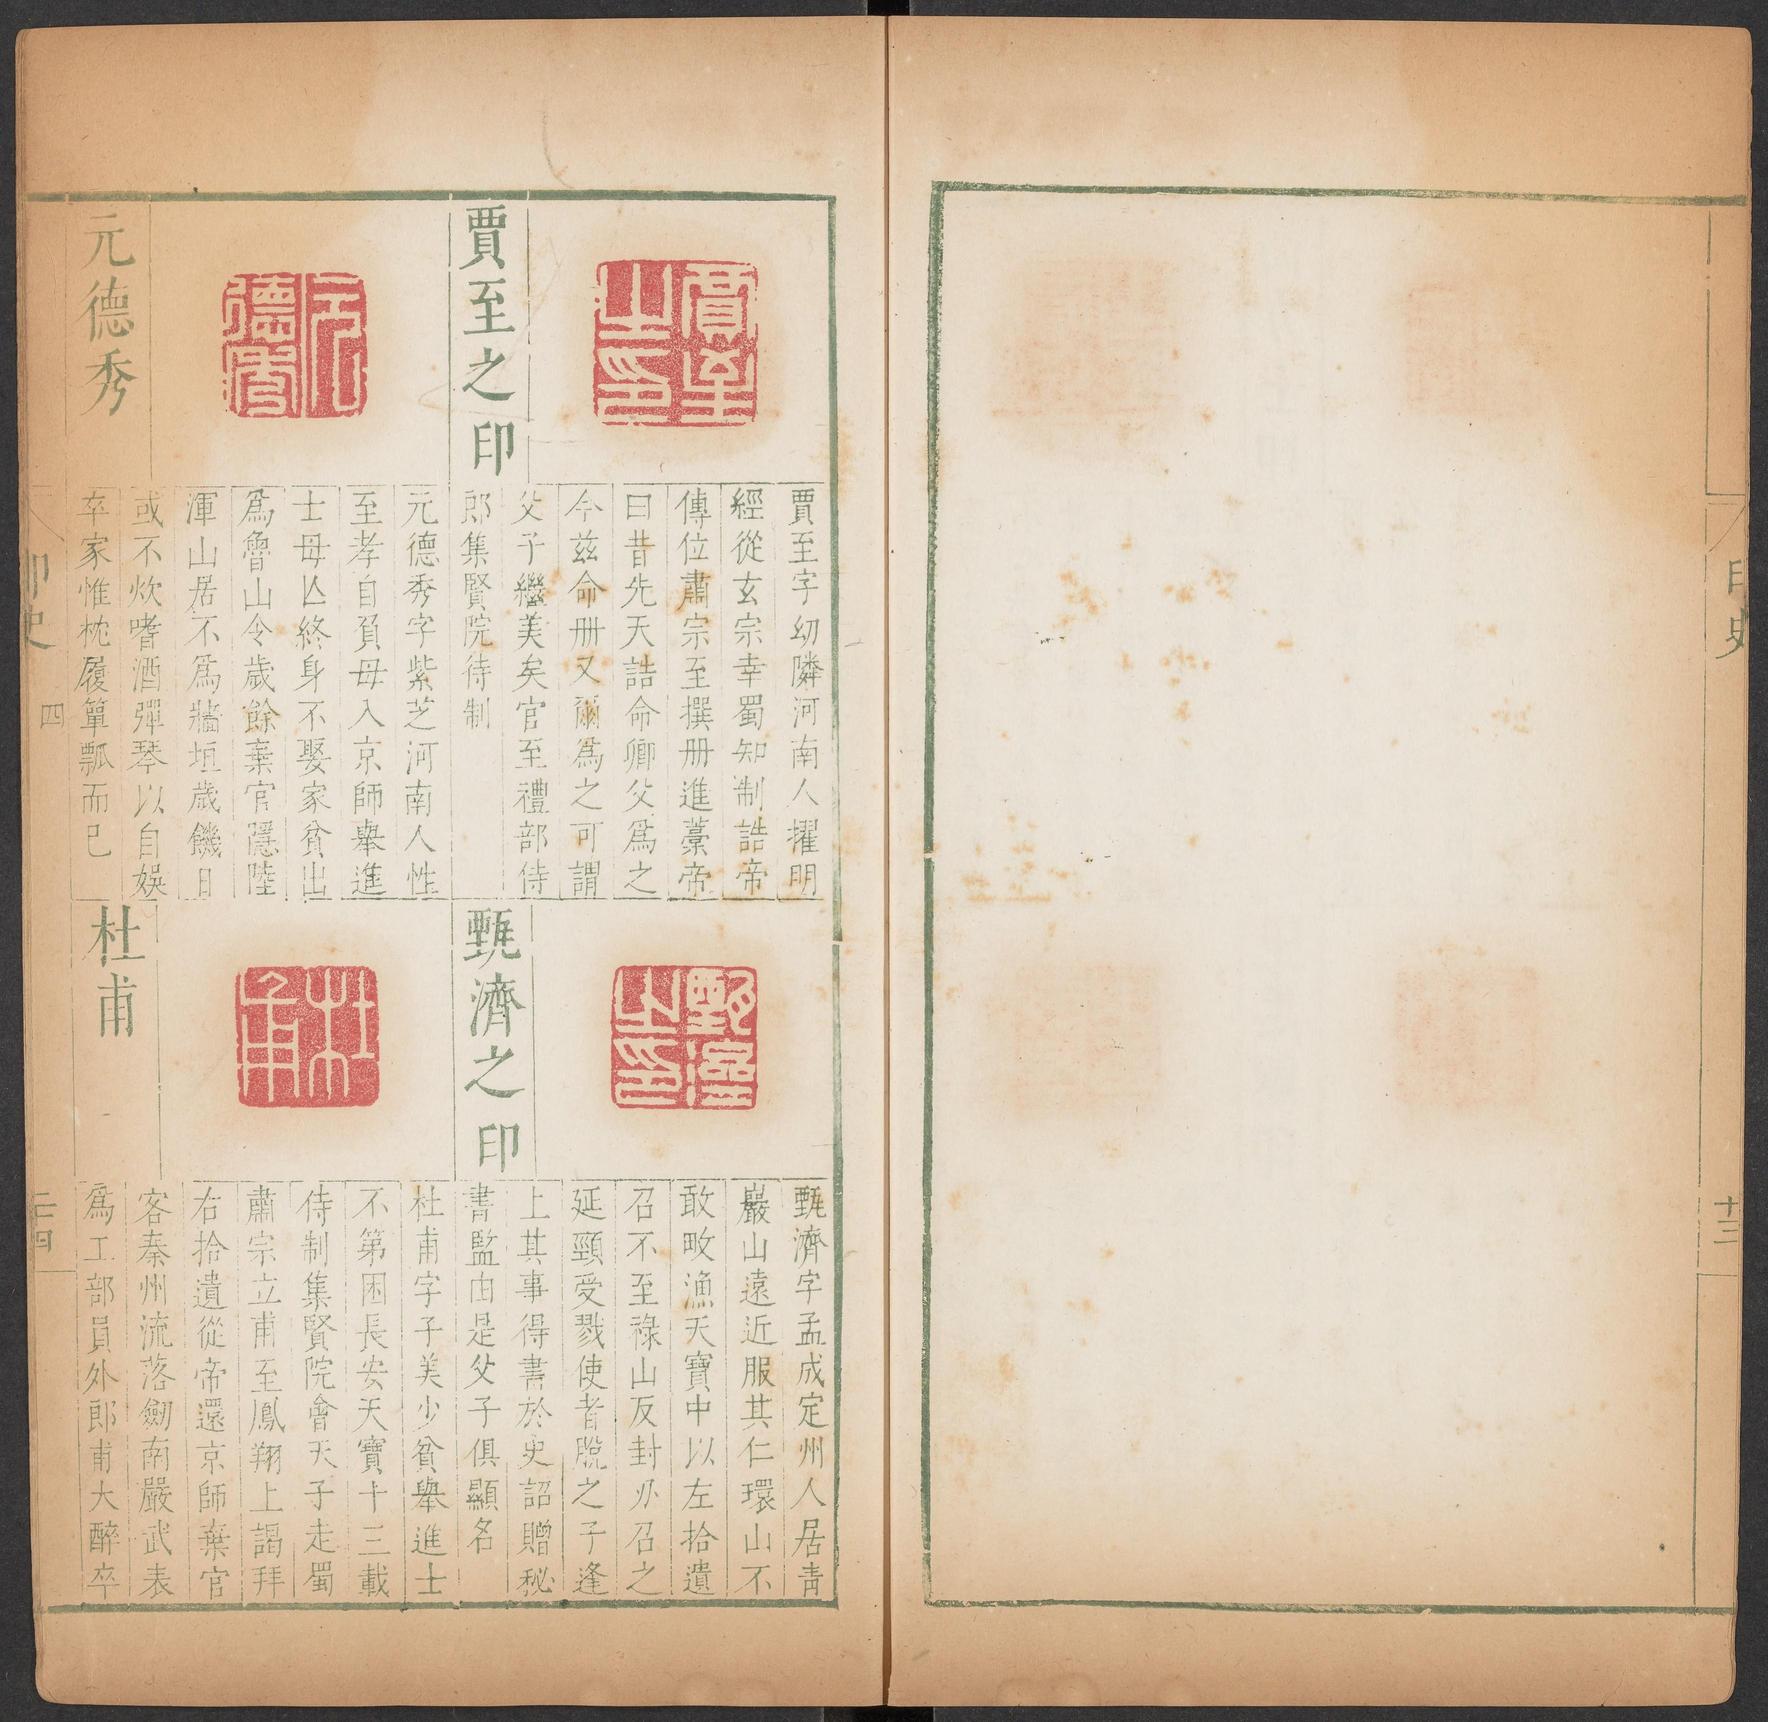 印史
十三
賈至之印
賈至之印
賈至字幼隣河南人擢明
經從玄宗幸蜀知制誥帝
傳位肅宗至撰冊進藁帝
曰昔先天誥命卿父爲之
今茲命冊又爾爲之可謂
父子繼美矣官至禮部侍
郎集賢院待制
元德秀
元德秀
元德秀字紫芝河南人性
至孝自負母入京師舉進
士母亾終身不娶家貧出
爲魯山令歲餘棄官隱陸
渾山居不爲牆垣歲饑日
或不炊嗜酒彈琴以自娛
卒家惟枕履簞瓢而已
甄濟之印
甄濟之印
甄濟字孟成定州人居青
巖山遠近服其仁環山不
敢畋漁天寶中以左拾遺
召不至祿山反封刀召之
延頸受戮使者脫之子逢
上其事得書於史詔贈秘
書監由是父子俱顯名
杜甫
杜甫
杜甫字子美少貧舉進士
不第困長安天寶十三載
待制集賢院會天子走蜀
肅宗立甫至鳳翔上謁拜
右拾遺從帝還京師棄官
客秦州流落劒南嚴武表
爲工部員外郎甫大醉卒
印史
四